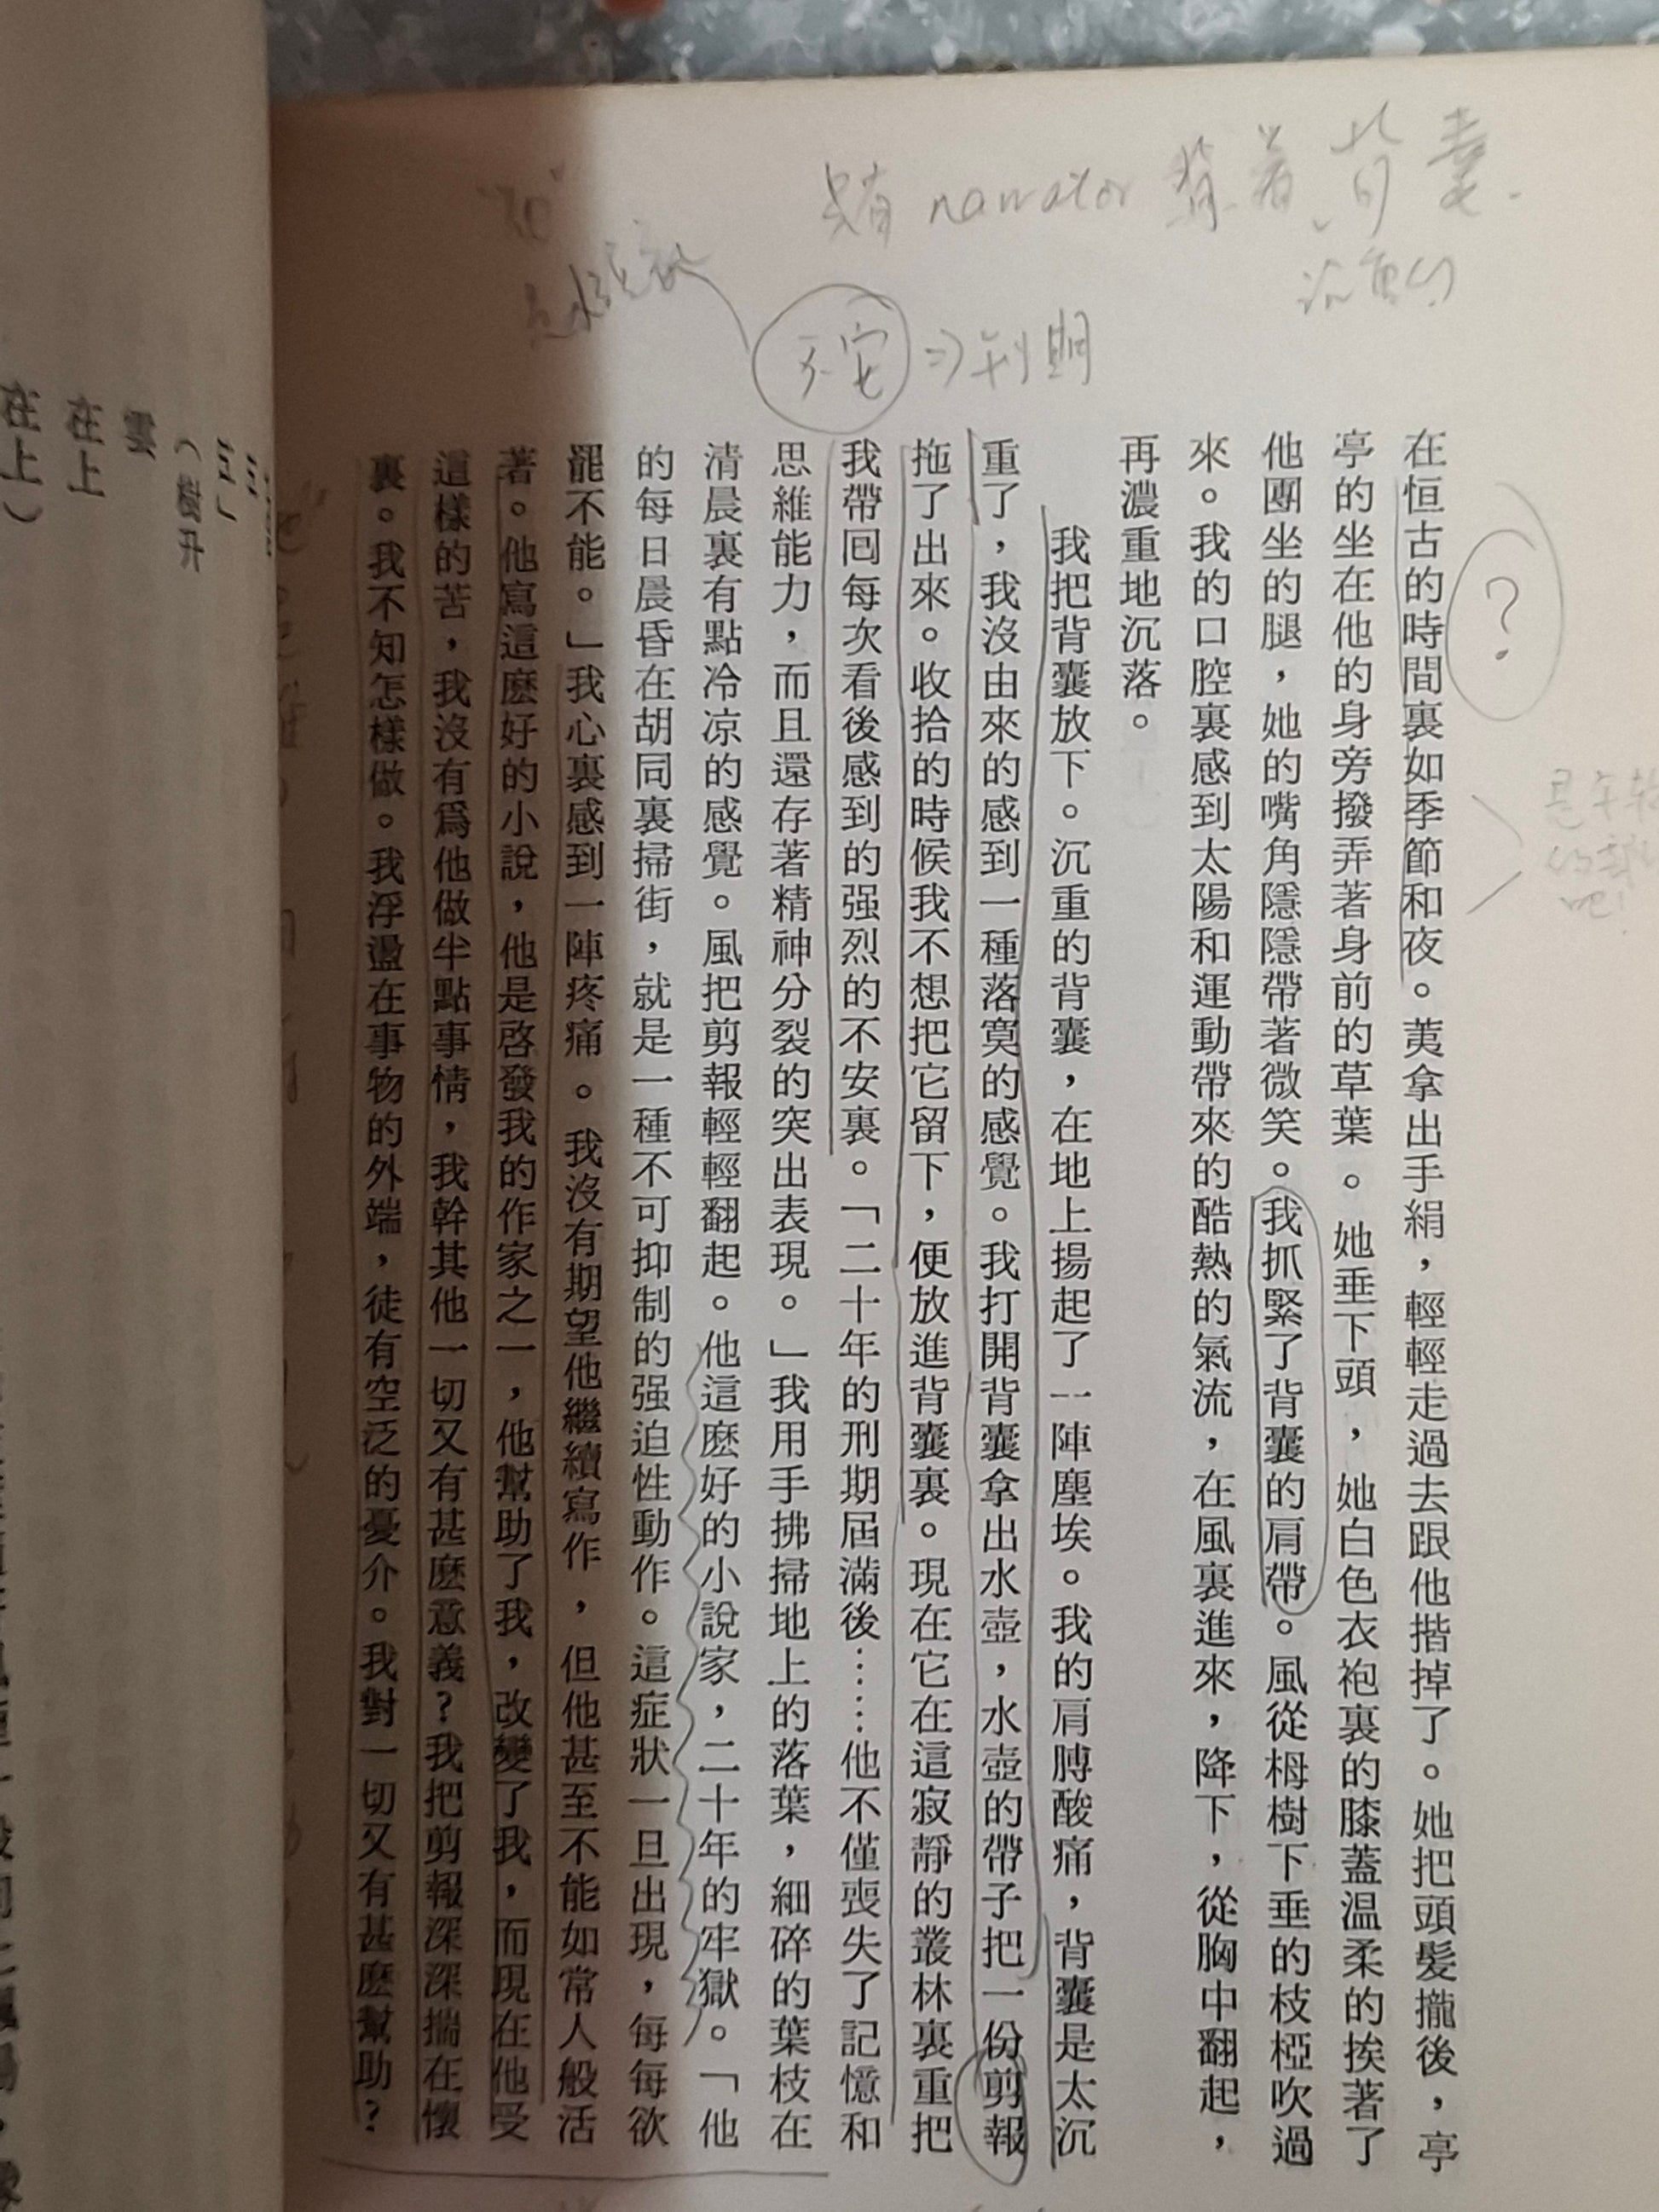 只有 narrator 背着 背囊.
沉重的
不安 ⇒ 刊期
?
是年轻
吧!
在恒古的時間裏如季節和夜。荑拿出手絹，輕輕走過去跟他揩掉了。她把頭髮攏後，亭
亭的坐在他的身旁撥弄著身前的草葉。她垂下頭，她白色衣袍裏的膝蓋温柔的挨著了
他團坐的腿，她的嘴角隱隱帶著微笑。我抓緊了背囊的肩帶。風從栂樹下垂的枝椏吹過
來。我的口腔裏感到太陽和運動帶來的酷熱的氣流，在風裏進來，降下，從胸中翻起，
再濃重地沉落。
我把背囊放下。沉重的背囊，在地上揚起了一陣塵埃。我的肩膊酸痛，背囊是太沉
重了，我沒由來的感到一種落寞的感覺。我打開背囊拿出水壺，水壺的帶子把一份剪報
拖了出來。收拾的時候我不想把它留下，便放進背囊裏。現在它在這寂靜的叢林裏重把
我帶回每次看後感到的强烈的不安裏。「二十年的刑期屆滿後……他不僅喪失了記憶和
思維能力，而且還存著精神分裂的突出表現。」我用手拂掃地上的落葉，細碎的葉枝在
清晨裏有點冷凉的感覺。風把剪報輕輕翻起。他這麽好的小說家，二十年的牢獄。「他
的每日晨昏在胡同裏掃街，就是一種不可抑制的强迫性動作。這症狀一旦出現，每每欲
罷不能。」我心裏感到一陣疼痛。我沒有期望他繼續寫作，但他甚至不能如常人般活
著。他寫這麽好的小說，他是啓發我的作家之一，他幫助了我，改變了我，而現在他受
這樣的苦，我沒有爲他做半點事情，我幹其他一切又有甚麽意義？我把剪報深深揣在懷
裏。我不知怎樣做。我浮盪在事物的外端，徒有空泛的憂介。我對一切又有甚麽幫助？
（樹升
雲
在上
在上）